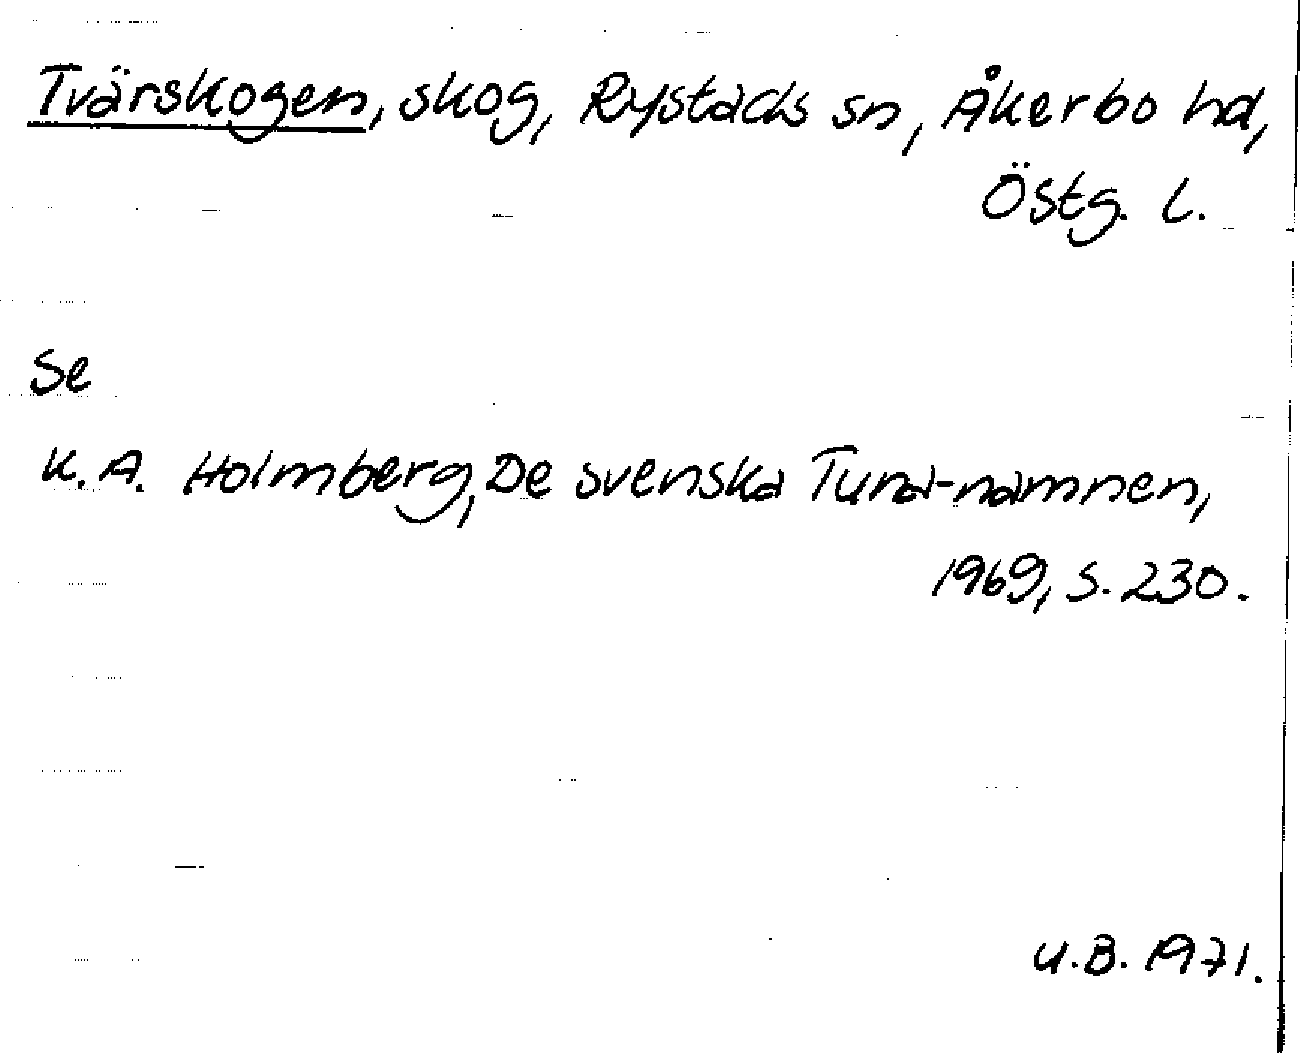 Tvärskogen, skog, Rystads sn, Åkerbo hd,
Östg. l.
Se
K. A. Holmberg, De svenska Tuna-namnen,
1969, s. 230.
U.B. 1971.